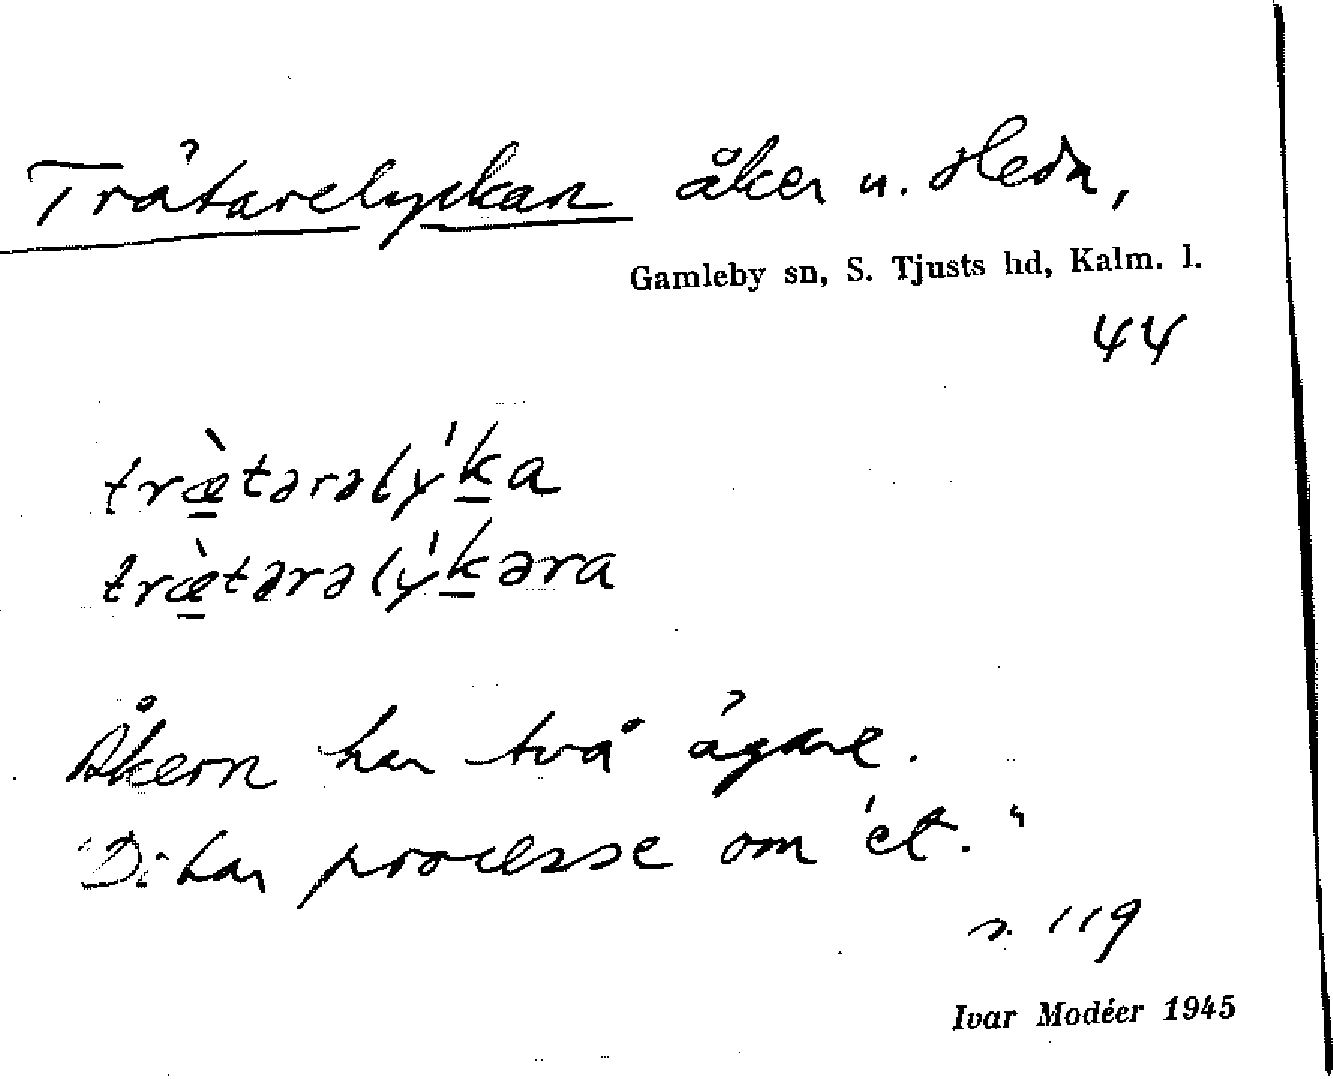 Trätarelyckan åker u. Hedn,
Gamleby sn, S. Tjusts hd, Kalm. l.
44
træ̀tərəlýka
træ̀tərəlýkəra
Åkern har två ägare.
"Di har processe om 'et."
s. 119
Ivar Modéer 1945